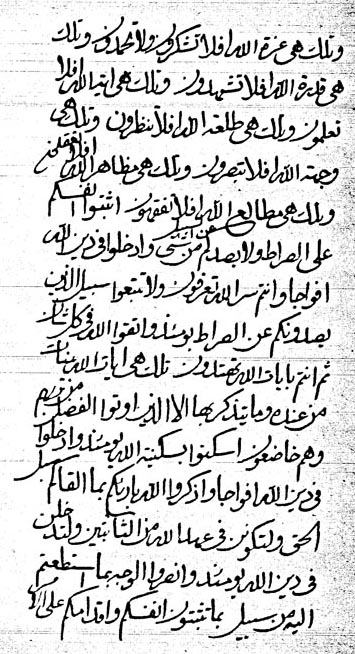 وتلك هي عزة الله افلا تشكرون ولا تحمدون وتلك
هي قدرة الله افلا تشهدون وتلك هي اية الله افلا
تعلمون وتلك هي طلعة الله افلا تنظرون وتلك هي
وجهة الله افلا تبصرون وتلك هي مظاهر الله افلا
وتلك هي مطالع الله افلا تفقهون اثبتوا انفسكم
على الصراط ولا يصدكم من شيء وادخلوا في دين الله
افواجا وانتم سر الله تعرفون ولا تتبعوا سبيل الذين
يصدونكم عن الصراط يومئذ واتقوا الله في كل شان
ثم انتم بايات الله تهتدون تلك هي ايات الله
من عنده وما يتذكر بها الا الذين اوتوا الفضل من ربهم
وهم خاضعون اسكنوا بسكينة الله يومئذ وادخلوا
في دين الله افواجا واذكروا الله بارئكم بما القاكم
الحق ولتكونن في عهد الله من الثابتين ولتدخلن
في دين الله يومئذ وانصروا الوجه بما استطعتم
اليه من سبيل بما تثبتون انفسكم واقدامكم على